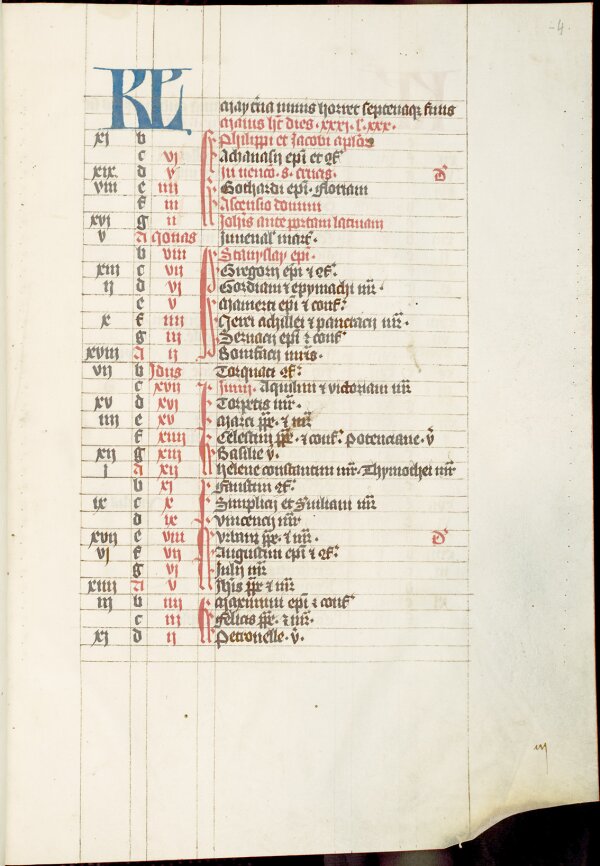 4
KL Maij t͛cia nimiis horret septenaq͛ fiuis
Maius ht͛ dies · xxxi · l · xxx ·
xi b Philippi et Jacobi ap̄lo℞
c vi Athanasij epi et ɔf͛
xix d v Inuenco · s · crucis · D͛
viii e iiii Gothardi epi · floriani
f iii Ascensio domini
xvi g ii Johis ante portam latinam
v A Nonas Juuenal mart͛ ·
b viii Stanyslay epi ·
xiii c vii Gregorij epi ⁊ ɔf͛
ii d vi Gordiani ⁊ epymachi mr̄ ·
e v Mamerti epi ⁊ conf͛
x f iiii Nerei achillei ⁊ pancracij mr̄ ·
g iii Seruacij epi ⁊ conf͛
xviii A ii Bonifacij mr̄is ·
vii b Idus Torquati ɔf͛
c xvii Junij · Aquilini ⁊ victoriani mr̄
xv d xvi Torpetis mr̄ ·
iiii e xv Marci pp̄e · ⁊ mr̄
f xiiii Celestini pp̄e · ⁊ conf͛ potenciane · v̄
xii g xiii Basilie v̄ ·
i A xii Helene constantini mr̄ · Thymothei mr̄
b xi Faustini ɔf͛
ix c x Simplicij et Siuiliani mr̄
d ix Vincencij mr̄
xvii e viii Vrbani pp̄e · ⁊ mr̄ · D͛
vi f vii Augustini epi ⁊ ɔf͛
g vi Julij mr̄
xiiii A v Johis pp̄e ⁊ mr̄
iii b iiii Maximini epi ⁊ conf͛
c iii Felicis pp̄e · ⁊ mr̄ ·
xi d ii Petronelle · v̄ ·
iij